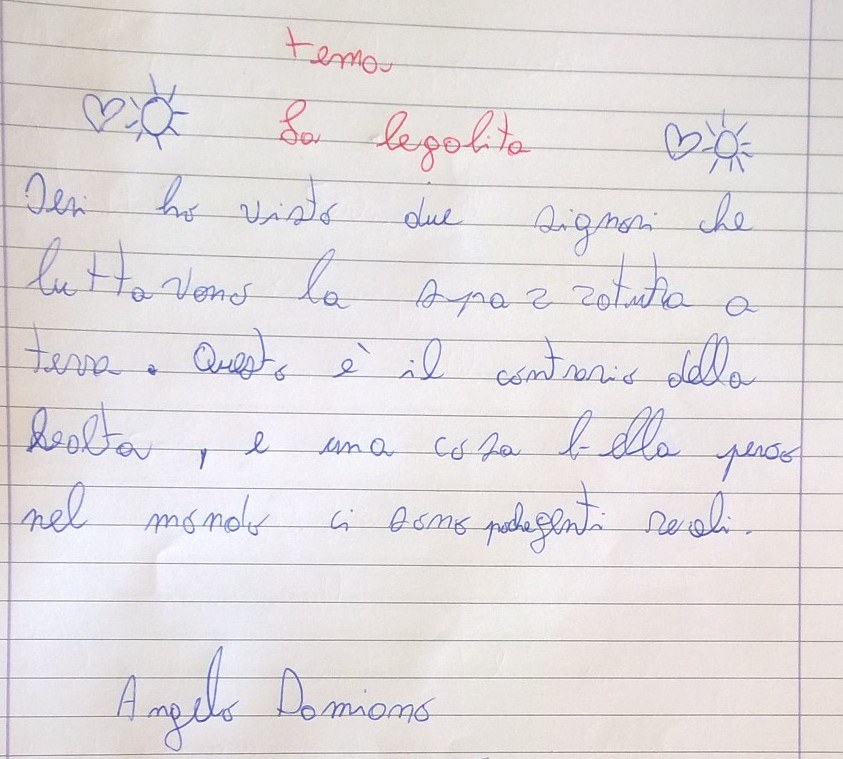 tema
La legalita
Ieri ho visto due signori che
luttavano la spazzatutta a
terra. Questo è il contrario della
lealta, e una cosa bella peroo
nel mondo ci sono poche genti reali.
Angelo Damiano